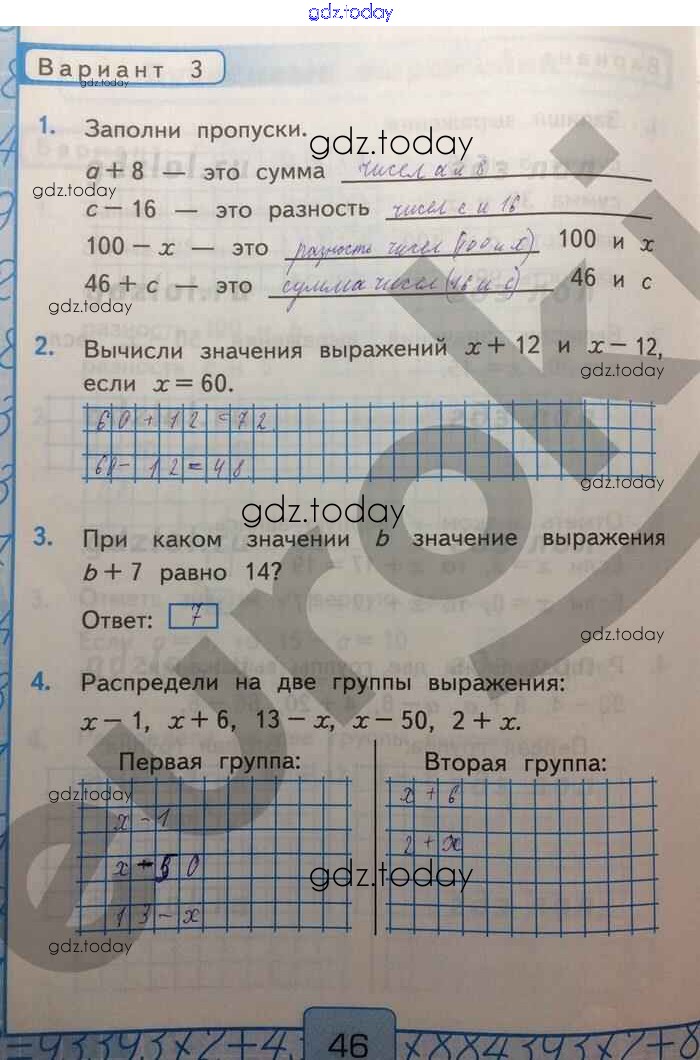 gdz.today
Вариант 3
gdz.today
1. Заполни пропуски.
gdz.today
a + 8 — это сумма чисел a и 8
gdz.today
c − 16 — это разность чисел c и 16
100 − x — это разность чисел (100 и x) 100 и x
46 + c — это сумма чисел (46 и c) 46 и c
gdz.today
2. Вычисли значения выражений x + 12 и x − 12,
если x = 60.
gdz.today
60 + 12 = 72
60 − 12 = 48
gdz.today
3. При каком значении b значение выражения
b + 7 равно 14?
Ответ: 7
gdz.today
4. Распредели на две группы выражения:
x − 1, x + 6, 13 − x, x − 50, 2 + x.
Первая группа:
gdz.today
x − 1
x − 50
13 − x
gdz.today
Вторая группа:
x + 6
2 + x
gdz.today
euroki
46